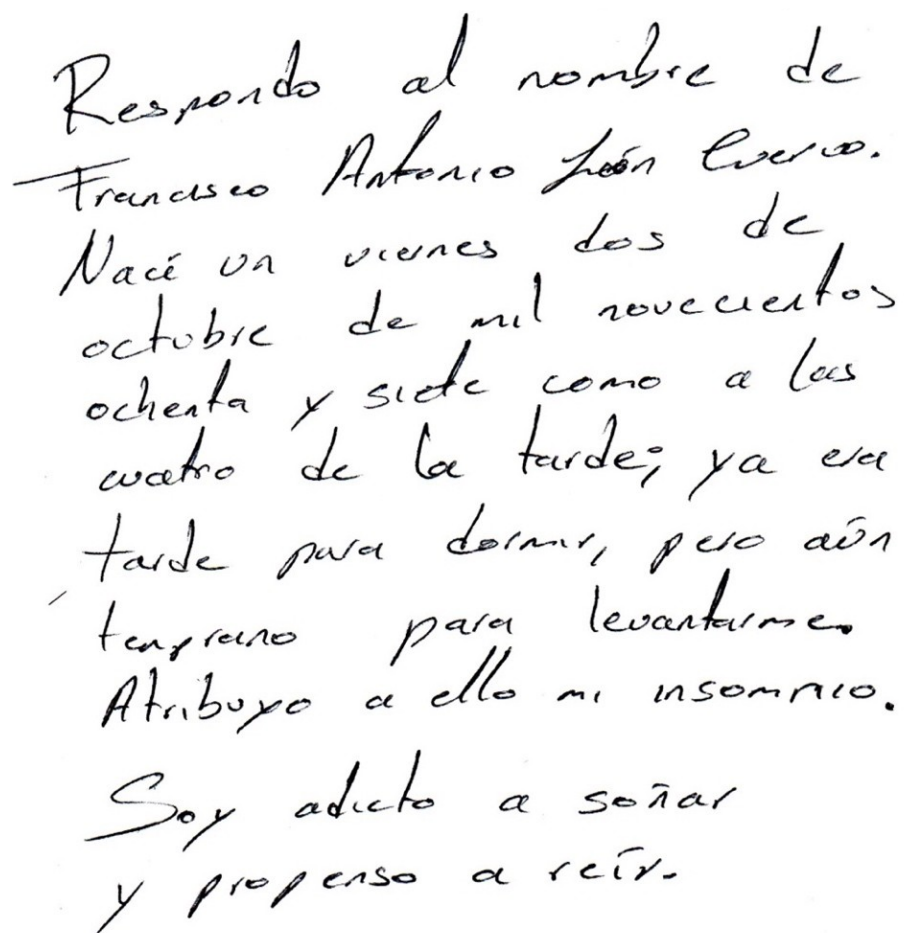 Respondo al nombre de
Francisco Antonio León Cuervo.
Nací un viernes dos de
octubre de mil novecientos
ochenta y siete como a las
cuatro de la tarde; ya era
tarde para dormir, pero aún
temprano para levantarme.
Atribuyo a ello mi insomnio.
Soy adicto a soñar
y propenso a reír.